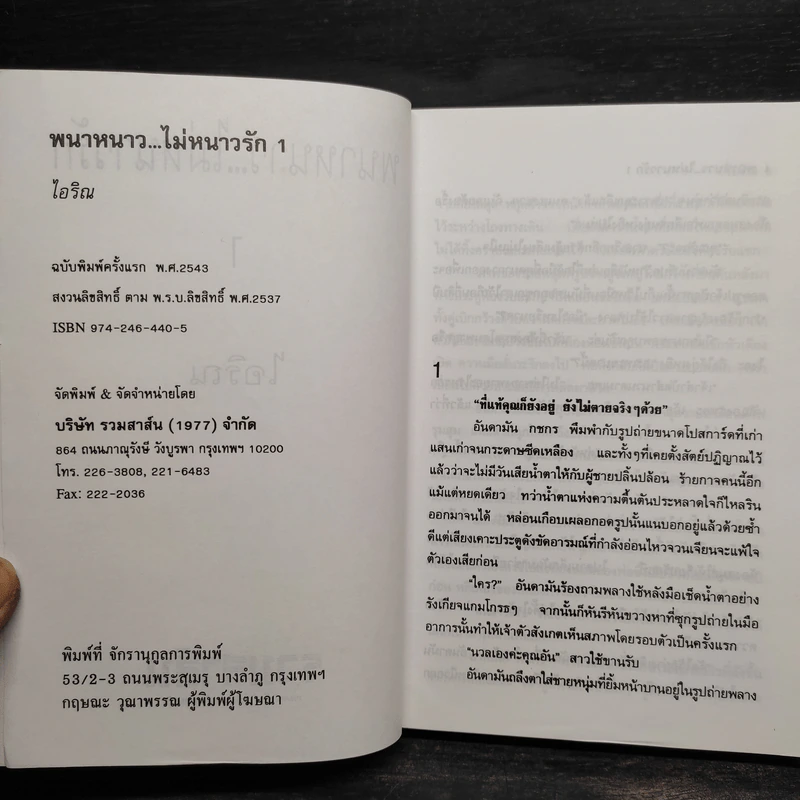 พนาหนาว...ไม่หนาวรัก 1
ไอริณ
ฉบับพิมพ์ครั้งแรก พ.ศ.2543
สงวนลิขสิทธิ์ ตาม พ.ร.บ.ลิขสิทธิ์ พ.ศ.2537
ISBN 974-246-440-5
จัดพิมพ์ & จัดจำหน่ายโดย
บริษัท รวมสาส์น (1977) จำกัด
864 ถนนภาณุรังษี วังบูรพา กรุงเทพฯ 10200
โทร. 226-3808, 221-6483
Fax: 222-2036
พิมพ์ที่ จักรานุกูลการพิมพ์
53/2-3 ถนนพระสุเมรุ บางลำภู กรุงเทพฯ
กฤษณะ วุฒาพรรณ ผู้พิมพ์ผู้โฆษณา
1
“ที่แท้คุณก็ยังอยู่ ยังไม่ตายจริงๆด้วย”
อันดามัน กชกร พึมพำกับรูปถ่ายขนาดโปสการ์ดที่เก่า
แสนเก่าจนกระดาษซีดเหลือง และทั้งๆที่เคยตั้งสัตย์ปฏิญาณไว้
แล้วว่าจะไม่มีวันเสียน้ำตาให้กับผู้ชายปลิ้นปล้อน ร้ายกาจคนนี้อีก
แม้แต่หยดเดียว ทว่าน้ำตาแห่งความตื้นตันประหลาดใจก็ไหลริน
ออกมาจนได้ หล่อนเกือบเผลอกอดรูปนั้นแนบอกอยู่แล้วด้วยซ้ำ
ดีแต่เสียงเคาะประตูดังขัดอารมณ์ที่กำลังอ่อนไหวจวนเจียนจะแพ้ใจ
ตัวเองเสียก่อน
“ใคร?” อันดามันร้องถามพลางใช้หลังมือเช็ดน้ำตาอย่าง
รังเกียจแกมโกรธๆ จากนั้นก็หันรีหันขวางหาที่ซุกรูปถ่ายในมือ
อาการนั้นทำให้เจ้าตัวสังเกตเห็นสภาพโดยรอบตัวเป็นครั้งแรก
“นวลเองค่ะคุณอัน” สาวใช้ขานรับ
อันดามันถลึงตาใส่ชายหนุ่มที่ยิ้มหน้าบานอยู่ในรูปถ่ายพลาง